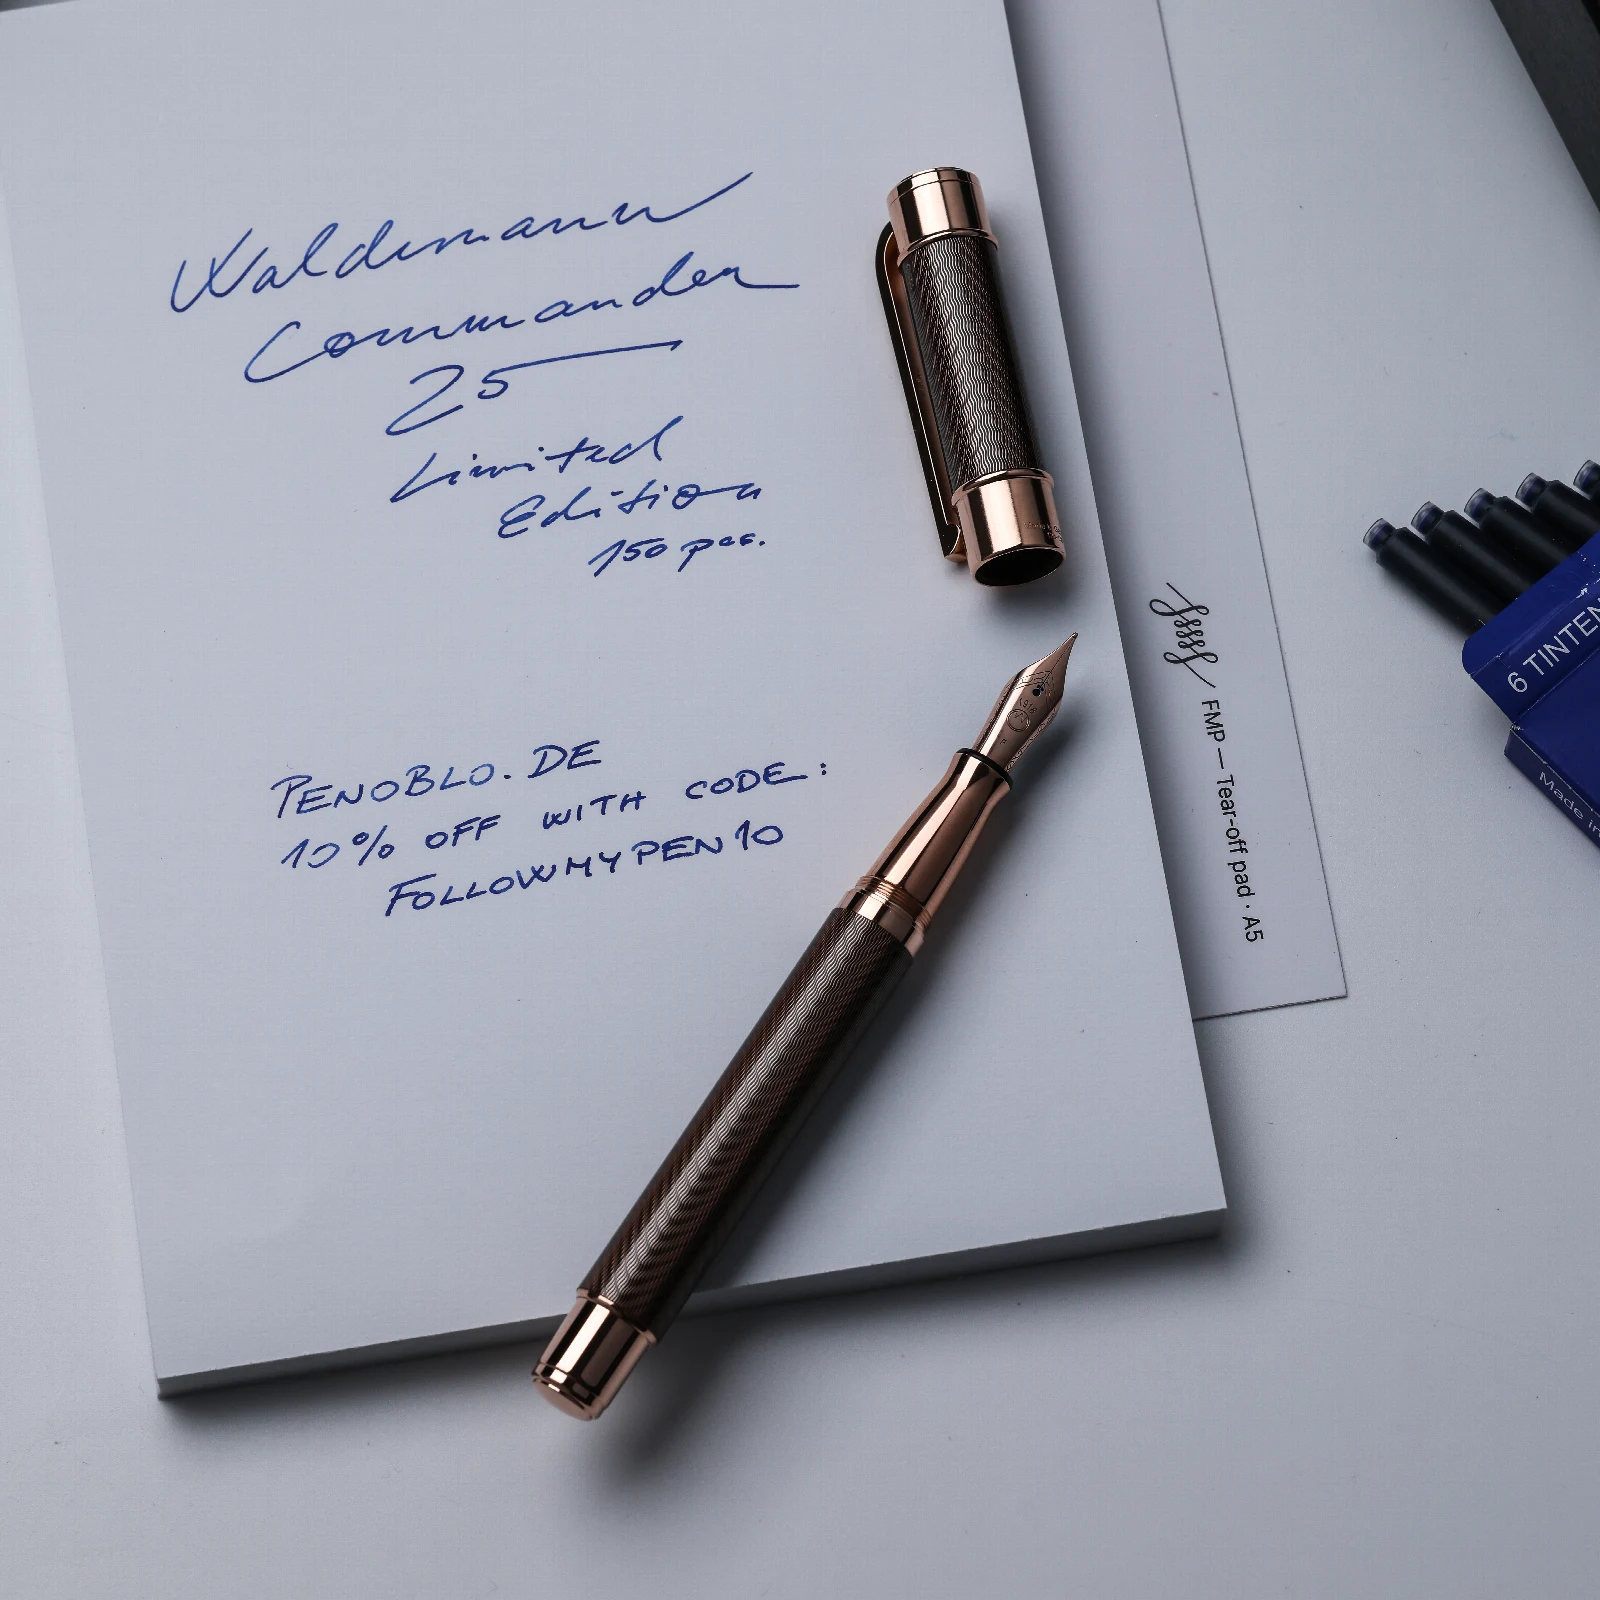 Waldmann
Commander
25
Limited
Edition
150 pcs.
PENOBLO.DE
10% OFF WITH CODE:
FOLLOWMYPEN10
FMP — Tear-off pad · A5
6 TINTEN
Made in
1918